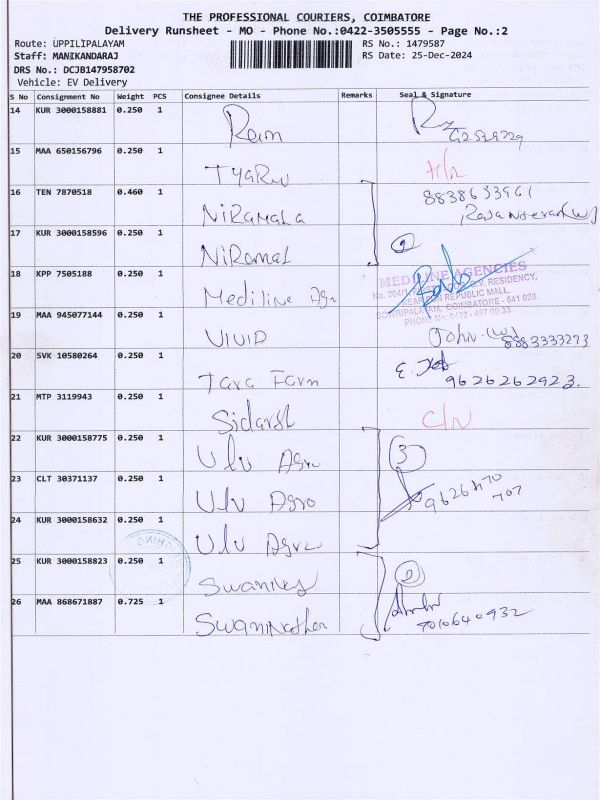 THE PROFESSIONAL COURIERS, COIMBATORE
Delivery Runsheet - MO - Phone No.:0422-3505555 - Page No.:2
Route: UPPILIPALAYAM
RS No.: 1479587
Staff: MANIKANDARAJ
RS Date: 25-Dec-2024
DRS No.: DCJB147958702
Vehicle: EV Delivery
S No Consignment No Weight PCS Consignee Details Remarks Seal & Signature
14 KUR 3000158881 0.250 1 Ram
15 MAA 650156796 0.250 1
16 TEN 7870518 0.460 1 NiRamala 8838633961
17 KUR 3000158596 0.250 1 NiRamal 2
18 KPP 7505188 0.250 1 Mediline Agn
MEDILINE AGENCIES
RESIDENCY,
NEAR FUN REPUBLIC MALL,
SOWRIPALAYAM, COIMBATORE - 641 028.
PHONE No: 0422 - 497 00 33.
19 MAA 945077144 0.250 1 VIVID John (W) 8883333273
20 SVK 10580264 0.250 1 Tara Farm 9626262923.
21 MTP 3119943 0.250 1 Sidarsh C/N
22 KUR 3000158775 0.250 1 Ulv Agro 3
23 CLT 30371137 0.250 1 Ulv Agro 707
24 KUR 3000158632 0.250 1 Ulv Agro
25 KUR 3000158823 0.250 1 2
26 MAA 868671887 0.725 1 Swaminathan 9010640932